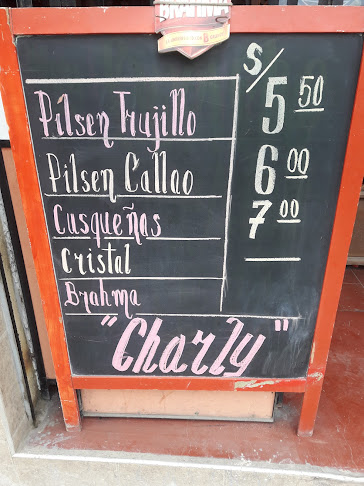 S/
Pilsen Trujillo 5.50
Pilsen Callao 6.00
Cusqueñas 7.00
Cristal
Brahma
"Charly"